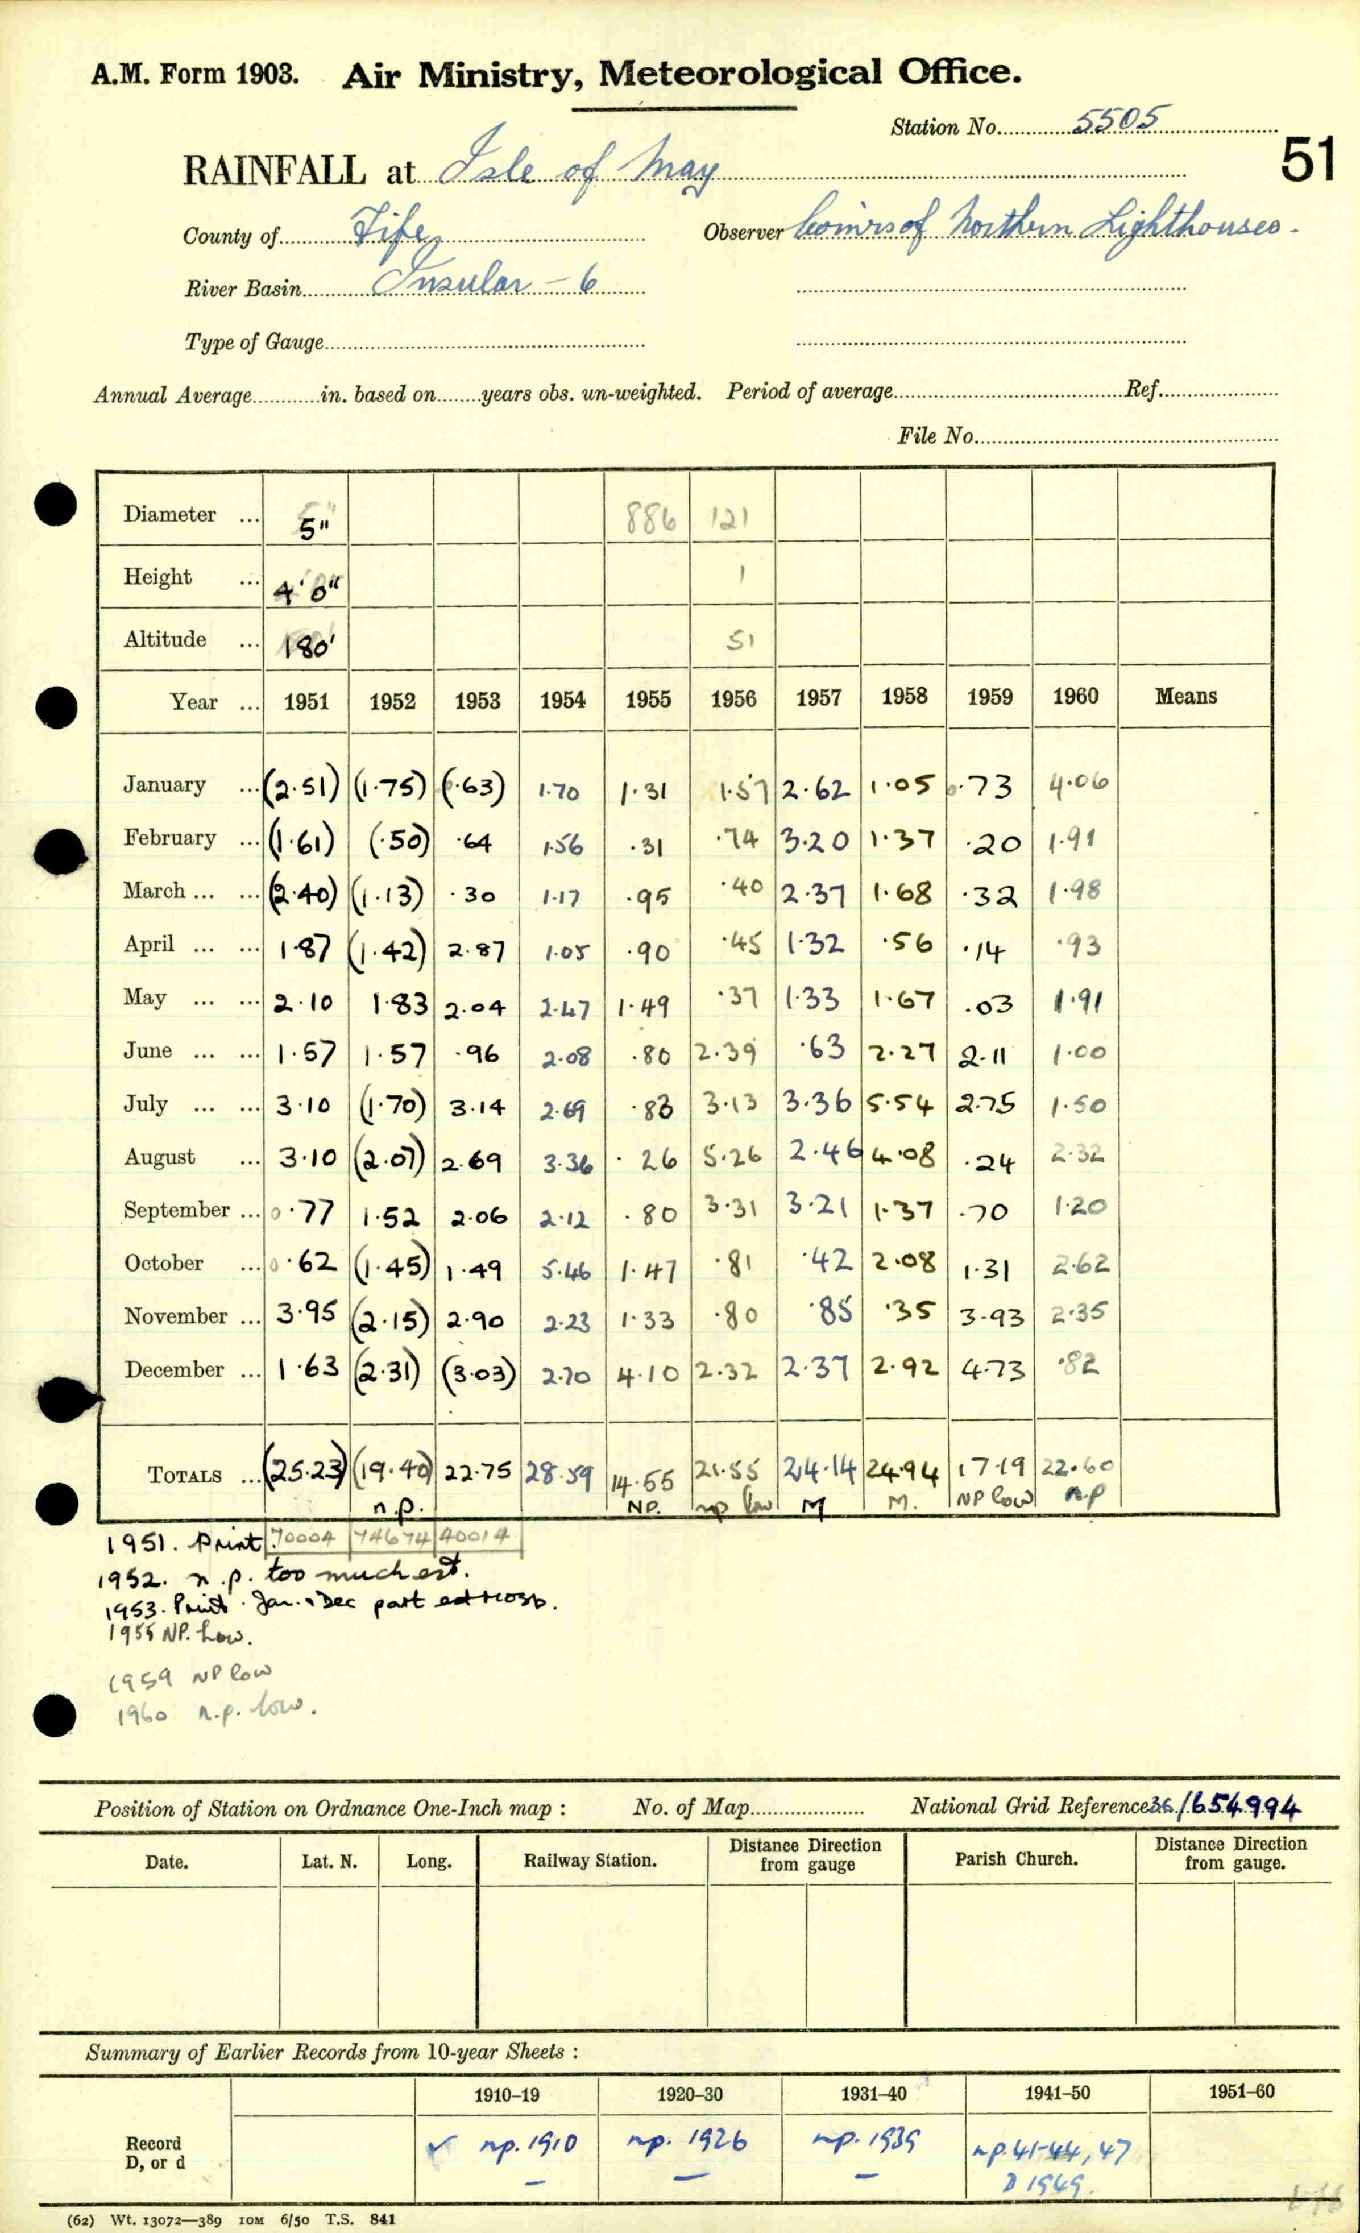 A.M. Form 1903. Air Ministry, Meteorological Office.
Station No. 5505
51
RAINFALL at Isle of May
County of Fife Observer Comrs of Northern Lighthouses.
River Basin Insular - 6
Type of Gauge
Annual Average in. based on years obs. un-weighted. Period of average Ref.
File No.
Diameter ... 5" 886 121
Height ... 4' 0" 1
Altitude ... 180' 51
Year ... 1951 1952 1953 1954 1955 1956 1957 1958 1959 1960 Means
January ... (2.51) (1.75) (.63) 1.70 1.31 1.57 2.62 1.05 0.73 4.06
February ... (1.61) (.50) .64 1.56 .31 .74 3.20 1.37 .20 1.91
March ... ... (2.40) (1.13) .30 1.17 .95 .40 2.37 1.68 .32 1.98
April ... ... 1.87 (1.42) 2.87 1.05 .90 .45 1.32 .56 .14 .93
May ... ... 2.10 1.83 2.04 2.47 1.49 .37 1.33 1.67 .03 1.91
June ... ... 1.57 1.57 .96 2.08 .80 2.39 .63 2.27 2.11 1.00
July ... ... 3.10 (1.70) 3.14 2.69 .83 3.13 3.36 5.54 2.75 1.50
August ... 3.10 (2.07) 2.69 3.36 .26 5.26 2.46 4.08 .24 2.32
September ... 0.77 1.52 2.06 2.12 .80 3.31 3.21 1.37 .70 1.20
October ... 0.62 (1.45) 1.49 5.46 1.47 .81 .42 2.08 1.31 2.62
November ... 3.95 (2.15) 2.90 2.23 1.33 .80 .85 .35 3.93 2.35
December ... 1.63 (2.31) (3.03) 2.70 4.10 2.32 2.37 2.92 4.73 .82
TOTALS ... (25.23) (19.40) 22.75 28.59 14.55 21.55 24.14 24.94 17.19 22.60
n.p. NP. np low M M. NP low n.p
1951. Print. 70004 74674 40014
1952. n.p. too much est.
1953. Print. Jan. & Dec part est
1955 NP. Low.
1959 NP low
1960 n.p. low.
Position of Station on Ordnance One-Inch map : No. of Map National Grid Reference 36/654994
Date. Lat. N. Long. Railway Station. Distance Direction from gauge Parish Church. Distance Direction from gauge.
Summary of Earlier Records from 10-year Sheets :
1910–19 1920–30 1931–40 1941–50 1951–60
Record D, or d ✓ np. 1910 np. 1926 np. 1939 np. 41-44, 47
– – – D 1949.
(62) Wt. 13072—389 10M 6/50 T.S. 841